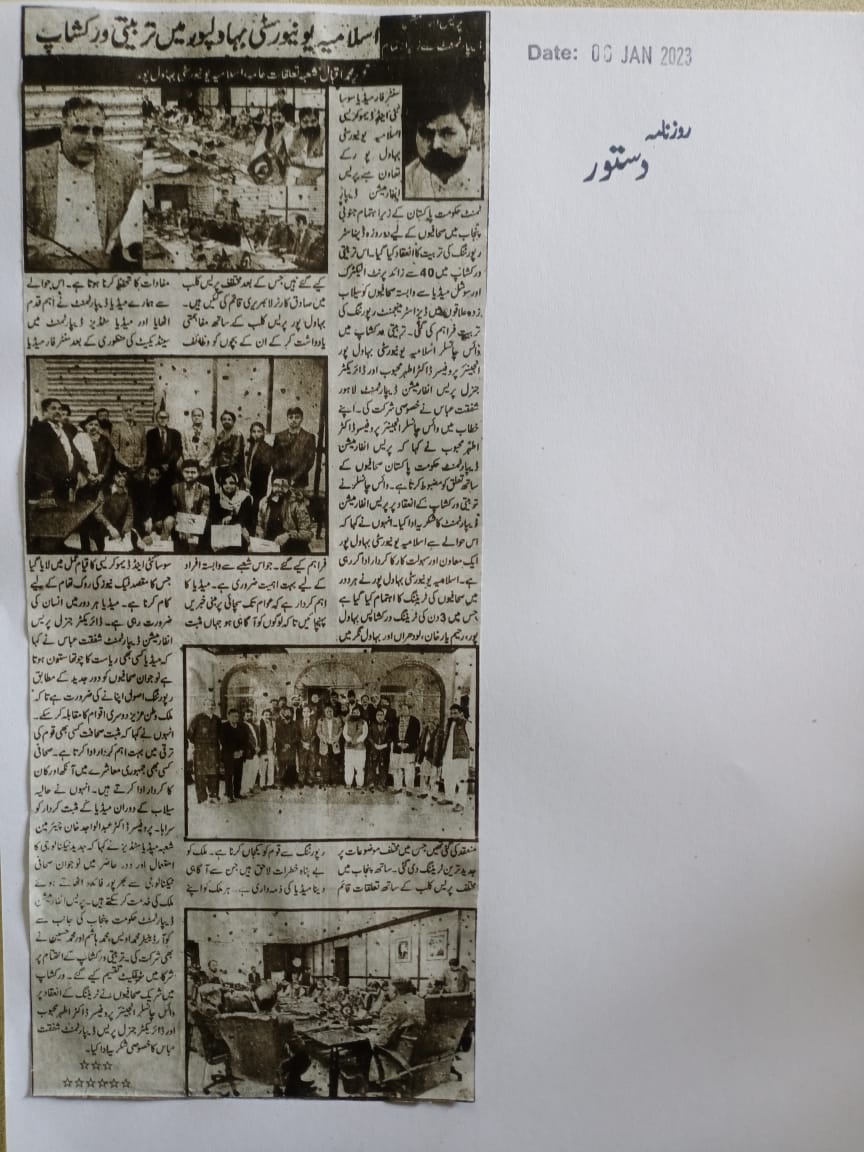 پریس انفارمیشن
ڈیپارٹمنٹ کے زیر اہتمام
اسلامیہ یونیورسٹی بہاولپور میں تربیتی ورکشاپ
تحریر: محمد اقبال شعبہ تعلقات عامہ اسلامیہ یونیورسٹی بہاول پور
Date: 06 JAN 2023
روزنامہ
دستور
سنٹر فار میڈیا سوسا
ئٹی اینڈ ڈیموکریسی
اسلامیہ یونیورسٹی
بہاول پور کے
تعاون سے پریس
انفارمیشن ڈیپار
ٹمنٹ حکومت پاکستان کے زیر اہتمام جنوبی
پنجاب میں صحافیوں کے لیے دو روزہ ڈیزاسٹر
رپورٹنگ کی تربیت کا انعقاد کیا گیا۔ اس تربیتی
ورکشاپ میں 40 سے زائد پرنٹ الیکٹرک
اور سوشل میڈیا سے وابستہ صحافیوں کو سیلاب
زدہ علاقوں میں ڈیزاسٹر مینجمنٹ رپورٹنگ کی
تربیت فراہم کی گئی۔ تربیتی ورکشاپ میں
وائس چانسلر اسلامیہ یونیورسٹی بہاول پور
انجینئر پروفیسر ڈاکٹر اطہر محبوب اور ڈائریکٹر
جنرل پریس انفارمیشن ڈیپارٹمنٹ لاہور
شفقت عباس نے خصوصی شرکت کی۔ اپنے
خطاب میں وائس چانسلر انجینئر پروفیسر ڈاکٹر
اطہر محبوب نے کہا کہ پریس انفارمیشن
ڈیپارٹمنٹ حکومت پاکستان صحافیوں کے
ساتھ تعلق کو مضبوط کرتا ہے۔ وائس چانسلر نے
تربیتی ورکشاپ کے انعقاد پر پریس انفارمیشن
ڈیپارٹمنٹ کا شکریہ ادا کیا۔ انہوں نے کہا کہ
اس حوالے سے اسلامیہ یونیورسٹی بہاول پور
ایک معاون اور سہولت کار کا کردار ادا کر رہی
ہے۔ اسلامیہ یونیورسٹی بہاول پور نے ہر دور
میں صحافیوں کی ٹریننگ کا اہتمام کیا گیا ہے
جس میں 3 دن کی ٹریننگ ورکشاپس بہاول
پور، رحیم یار خان، لودھراں اور بہاول نگر میں
منعقد کی گئی تھیں جس میں مختلف موضوعات پر
جدید ترین ٹریننگ دی گئی۔ ساتھ پنجاب میں
مختلف پریس کلب کے ساتھ تعلقات قائم
کیے گئے ہیں جس کے بعد مختلف پریس کلب
میں صادق کارنر لائبریری قائم کی گئیں ہیں۔
بہاول پور پریس کلب کے ساتھ مفاہمتی
یادداشت کر کے ان کے بچوں کو وظائف
فراہم کیے گئے۔ جو اس شعبے سے وابستہ افراد
کے لیے بہت اہمیت ضروری ہے۔ میڈیا کا
اہم کردار ہے کہ عوام تک سچائی پر مبنی خبریں
پہنچائیں تاکہ لوگوں کو آگاہی ہو جہاں مثبت
رپورٹنگ سے قوم کو یکجاں کرنا ہے۔ ملک کو
بے پناہ خطرات لاحق ہیں جن سے آگاہی
دینا میڈیا کی ذمہ داری ہے۔ ہر ملک کو اپنے
مفادات کا تحفظ کرنا ہوتا ہے۔ اس حوالے
سے ہمارے میڈیا ڈیپارٹمنٹ نے اہم قدم
اٹھایا اور میڈیا سٹڈیز ڈیپارٹمنٹ میں
سینڈیکیٹ کی منظوری کے بعد سنٹر فار میڈیا
سوسائٹی اینڈ ڈیموکریسی کا قیام عمل میں لایا گیا
جس کا مقصد فیک نیوز کی روک تھام کے لیے
کام کرنا ہے۔ میڈیا ہر دور میں انسان کی
ضرورت رہی ہے۔ ڈائریکٹر جنرل پریس
انفارمیشن ڈیپارٹمنٹ شفقت عباس نے کہا
کہ میڈیا کسی بھی ریاست کا چوتھا ستون ہوتا
ہے نوجوان صحافیوں کو دور جدید کے مطابق
رپورٹنگ اصولی اپنانے کی ضرورت ہے تاکہ
ملک وطن عزیز دوسری اقوام کا مقابلہ کر سکے۔
انہوں نے کہا کہ مثبت صحافت کسی بھی قوم کی
ترقی میں بہت اہم کردار ادا کرتا ہے۔ صحافی
کسی بھی جمہوری معاشرے میں آنکھ اور کان
کا کردار ادا کرتے ہیں۔ انہوں نے حالیہ
سیلاب کے دوران میڈیا کے مثبت کردار کو
سراہا۔ پروفیسر ڈاکٹر عبدالواجد خان چیئرمین
شعبہ میڈیا سٹڈیز نے کہا کہ جدید ٹیکنالوجی کا
استعمال اور دور حاضر میں نوجوان صحافی
ٹیکنالوجی سے بھرپور فائدہ اٹھاتے ہوئے
ملک کی خدمت کر سکتے ہیں۔ پریس انفارمیشن
ڈیپارٹمنٹ حکومت پنجاب کی جانب سے
کوآرڈینیٹر محمد اویس، محمد ہاشم اور محمد حسین نے
بھی شرکت کی۔ تربیتی ورکشاپ کے اختتام پر
شرکا میں سرٹیفکیٹ تقسیم کیے گئے۔ ورکشاپ
میں شریک صحافیوں نے ٹریننگ کے انعقاد پر
وائس چانسلر انجینئر پروفیسر ڈاکٹر اطہر محبوب
اور ڈائریکٹر جنرل پریس ڈیپارٹمنٹ شفقت
عباس کا خصوصی شکریہ ادا کیا۔
☆☆☆
☆☆☆☆☆☆